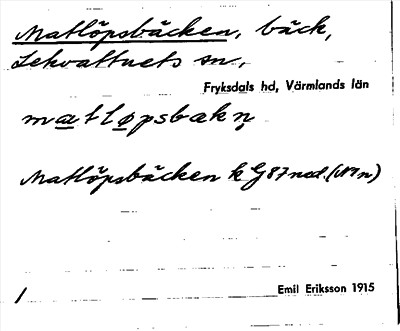 Matlöpsbäcken, bäck,
Lekvattnets sn,
Fryksdals hd, Värmlands län
matløpsbækn̥
Matlöpsbäcken k G87 nad. (N1n)
/
Emil Eriksson 1915